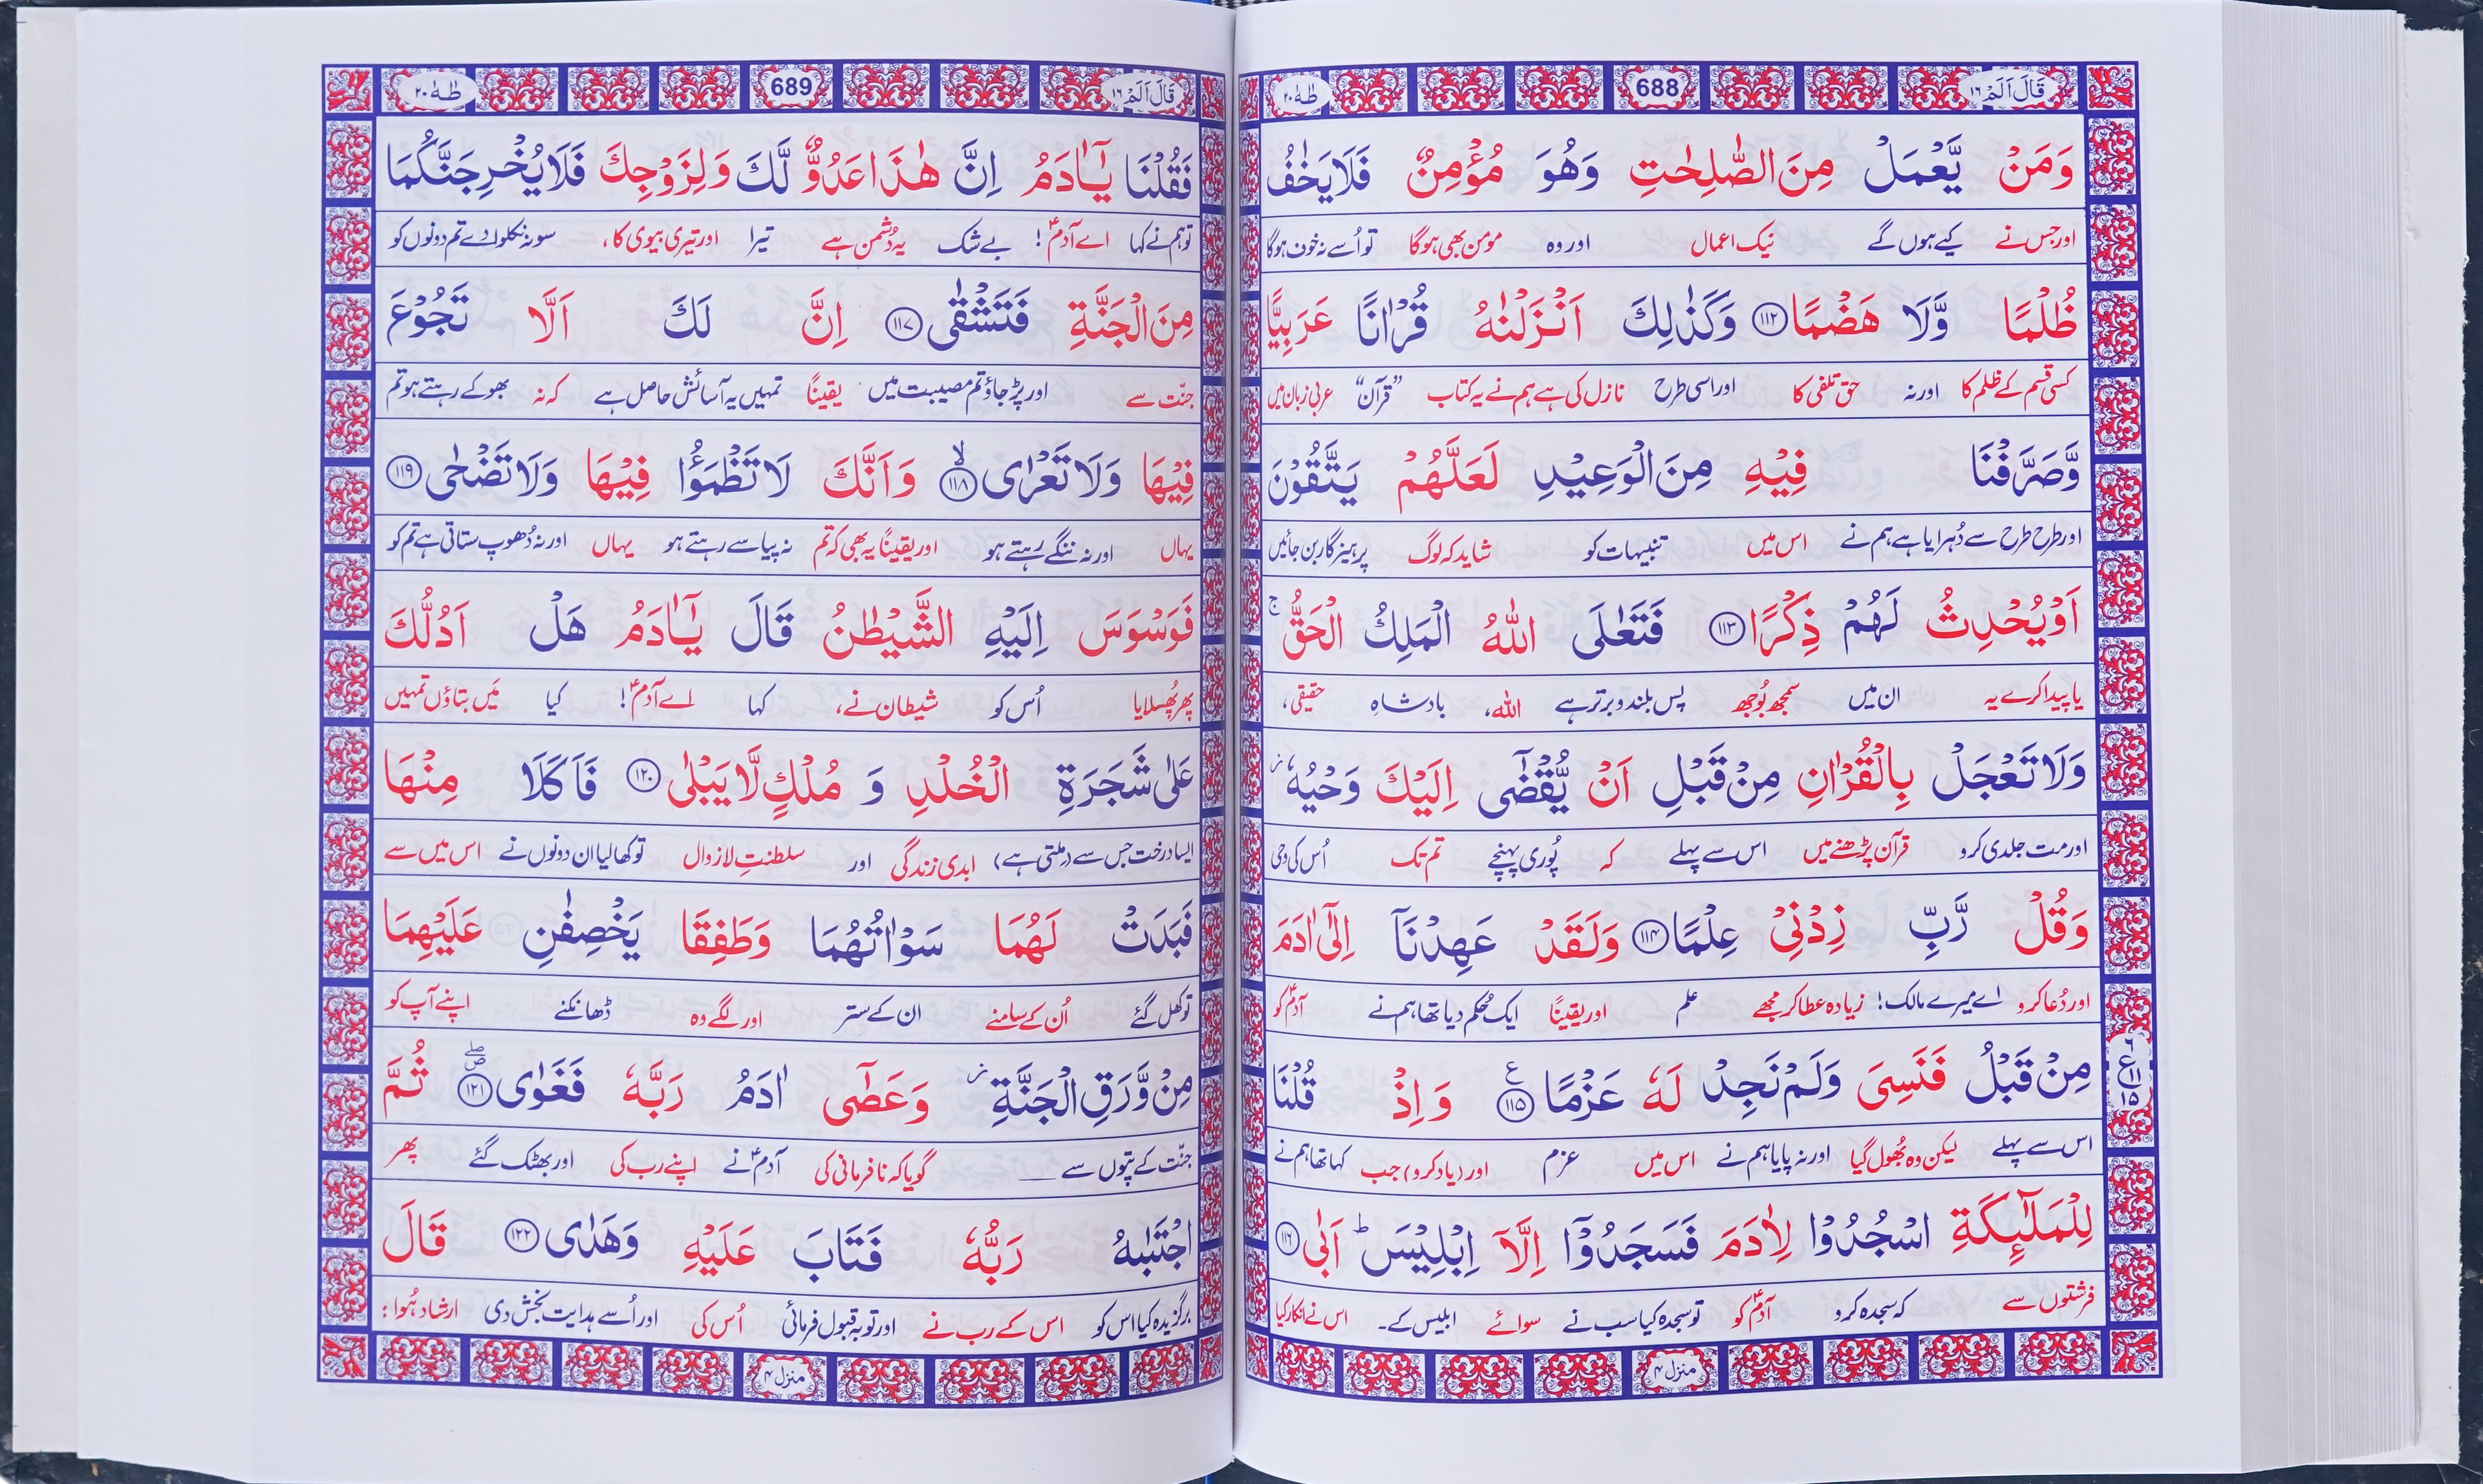 قَالَ اَلَمْ ۱۶
688
طٰهٰ ۲۰
وَمَنْ يَّعْمَلْ مِنَ الصّٰلِحٰتِ وَهُوَ مُؤْمِنٌ فَلَا يَخٰفُ
اور جس نے کیے ہوں گے نیک اعمال اور وہ مومن بھی ہوگا تو اُسے نہ خوف ہوگا
ظُلْمًا وَّلَا هَضْمًا ۝۱۱۲ وَكَذٰلِكَ اَنْزَلْنٰهُ قُرْاٰنًا عَرَبِيًّا
کسی قسم کے ظلم کا اور نہ حق تلفی کا اور اسی طرح نازل کی ہے ہم نے یہ کتاب ”قرآن“ عربی زبان میں
وَّصَرَّفْنَا فِيْهِ مِنَ الْوَعِيْدِ لَعَلَّهُمْ يَتَّقُوْنَ
اور طرح طرح سے دُہرایا ہے ہم نے اس میں تنبیہات کو شاید کہ لوگ پرہیزگار بن جائیں
اَوْ يُحْدِثُ لَهُمْ ذِكْرًا ۝۱۱۳ فَتَعٰلَى اللّٰهُ الْمَلِكُ الْحَقُّ ۚ
یا پیدا کرے یہ ان میں سمجھ بُوجھ پس بلند و برتر ہے اللہ، بادشاہِ حقیقی،
وَلَا تَعْجَلْ بِالْقُرْاٰنِ مِنْ قَبْلِ اَنْ يُّقْضٰٓى اِلَيْكَ وَحْيُهٗ ۡ
اور مت جلدی کرو قرآن پڑھنے میں اس سے پہلے کہ پُوری پہنچے تم تک اُس کی وحی
وَقُلْ رَّبِّ زِدْنِيْ عِلْمًا ۝۱۱۴ وَلَقَدْ عَهِدْنَآ اِلٰٓى اٰدَمَ
اور دُعا کرو اے میرے مالک! زیادہ عطا کر مجھے علم اور یقینًا ایک حُکم دیا تھا ہم نے آدمؑ کو
مِنْ قَبْلُ فَنَسِيَ وَلَمْ نَجِدْ لَهٗ عَزْمًا ۝۱۱۵ ع وَ اِذْ قُلْنَا
اس سے پہلے لیکن وہ بُھول گیا اور نہ پایا ہم نے اس میں عزم اور (یاد کرو) جب کہا تھا ہم نے
لِلْمَلٰٓئِكَةِ اسْجُدُوْا لِاٰدَمَ فَسَجَدُوْٓا اِلَّآ اِبْلِيْسَ ؕ اَبٰى ۝۱۱۶
فرشتوں سے کہ سجدہ کرو آدمؑ کو تو سجدہ کیا سب نے سوائے ابلیس کے۔ اس نے انکار کیا
منزل ۴
قَالَ اَلَمْ ۱۶
689
طٰهٰ ۲۰
فَقُلْنَا يٰٓاٰدَمُ اِنَّ هٰذَا عَدُوٌّ لَّكَ وَلِزَوْجِكَ فَلَا يُخْرِجَنَّكُمَا
تو ہم نے کہا اے آدمؑ! بے شک یہ دُشمن ہے تیرا اور تیری بیوی کا، سو نہ نکلوا دے تم دونوں کو
مِنَ الْجَنَّةِ فَتَشْقٰى ۝۱۱۷ اِنَّ لَكَ اَلَّا تَجُوْعَ
جنّت سے اور پڑ جاؤ تم مصیبت میں یقینًا تمہیں یہ آسائش حاصل ہے کہ نہ بھوکے رہتے ہو تم
فِيْهَا وَلَا تَعْرٰى ۝۱۱۸ۙ وَاَنَّكَ لَا تَظْمَؤُا فِيْهَا وَلَا تَضْحٰى ۝۱۱۹
یہاں اور نہ ننگے رہتے ہو اور یقینًا یہ بھی کہ تم نہ پیاسے رہتے ہو یہاں اور نہ دُھوپ ستاتی ہے تم کو
فَوَسْوَسَ اِلَيْهِ الشَّيْطٰنُ قَالَ يٰٓاٰدَمُ هَلْ اَدُلُّكَ
پھر پُھسلایا اُس کو شیطان نے، کہا اے آدمؑ! کیا مَیں بتاؤں تمہیں
عَلٰى شَجَرَةِ الْخُلْدِ وَ مُلْكٍ لَّا يَبْلٰى ۝۱۲۰ فَاَكَلَا مِنْهَا
ایسا درخت جس سے (ملتی ہے) ابدی زندگی اور سلطنتِ لازوال تو کھا لیا ان دونوں نے اس میں سے
فَبَدَتْ لَهُمَا سَوْاٰتُهُمَا وَطَفِقَا يَخْصِفٰنِ عَلَيْهِمَا
تو کھل گئے اُن کے سامنے ان کے ستر اور لگے وہ ڈھانکنے اپنے آپ کو
مِنْ وَّرَقِ الْجَنَّةِ ۡ وَعَصٰٓى اٰدَمُ رَبَّهٗ فَغَوٰى ۝۱۲۱ۖ ثُمَّ
جنّت کے پتّوں سے ـــــ گویا کہ نافرمانی کی آدمؑ نے اپنے رب کی اور بھٹک گئے پھر
اجْتَبٰىهُ رَبُّهٗ فَتَابَ عَلَيْهِ وَهَدٰى ۝۱۲۲ قَالَ
برگزیدہ کیا اس کو اس کے رب نے اور توبہ قبول فرمائی اُس کی اور اُسے ہدایت بخش دی ارشاد ہُوا:
منزل ۴